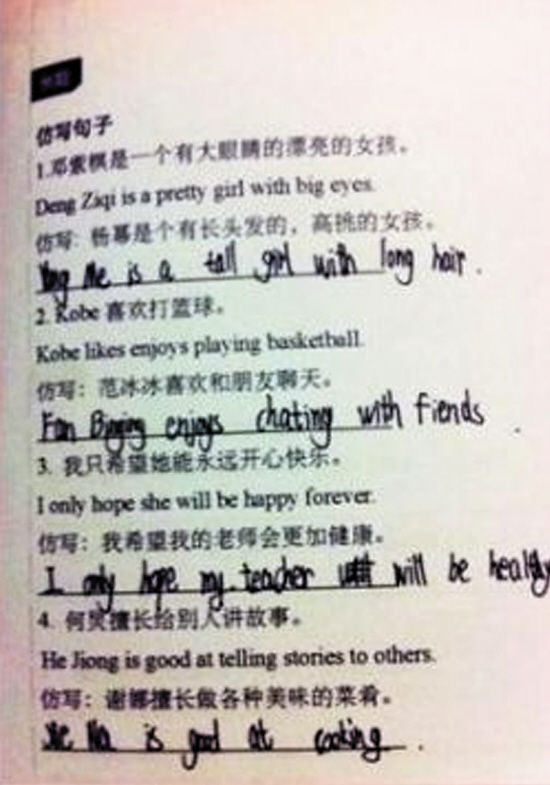 仿写句子
1.邓紫棋是一个有大眼睛的漂亮的女孩。
Deng Ziqi is a pretty girl with big eyes.
仿写: 杨幂是个有长头发的，高挑的女孩。
is a tall girl with long hair.
2. Kobe 喜欢打篮球。
Kobe likes enjoys playing basketball.
仿写：范冰冰喜欢和朋友聊天。
Fan Binging enjoys chating with fiends.
3. 我只希望她能永远开心快乐。
I only hope she will be happy forever.
仿写：我希望我的老师会更加健康。
I only hope my teacher will be
4. 何炅擅长给别人讲故事。
He Jiong is good at telling stories to others.
仿写：谢娜擅长做各种美味的菜肴。
Xie Na is good at cooking.